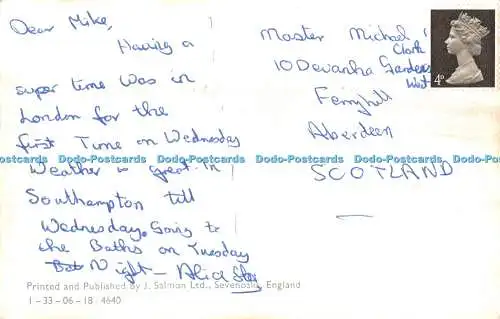 Dear Mike,
Having a
super time was in
London for the
first Time on Wednesday
Weather is great. In
Southampton till
Wednesday. Going to
the Baths on Tuesday
Night - Alice
Master Michael
Clark
10 Devanha Gardens
West
Ferryhill
Aberdeen
SCOTLAND
4D
Dodo-Postcards Dodo-Postcards Dodo-Postcards Dodo-Postcards Dodo-Postcards
Printed and Published By J. Salmon Ltd., Sevenoaks, England
1-33-06-18 4640